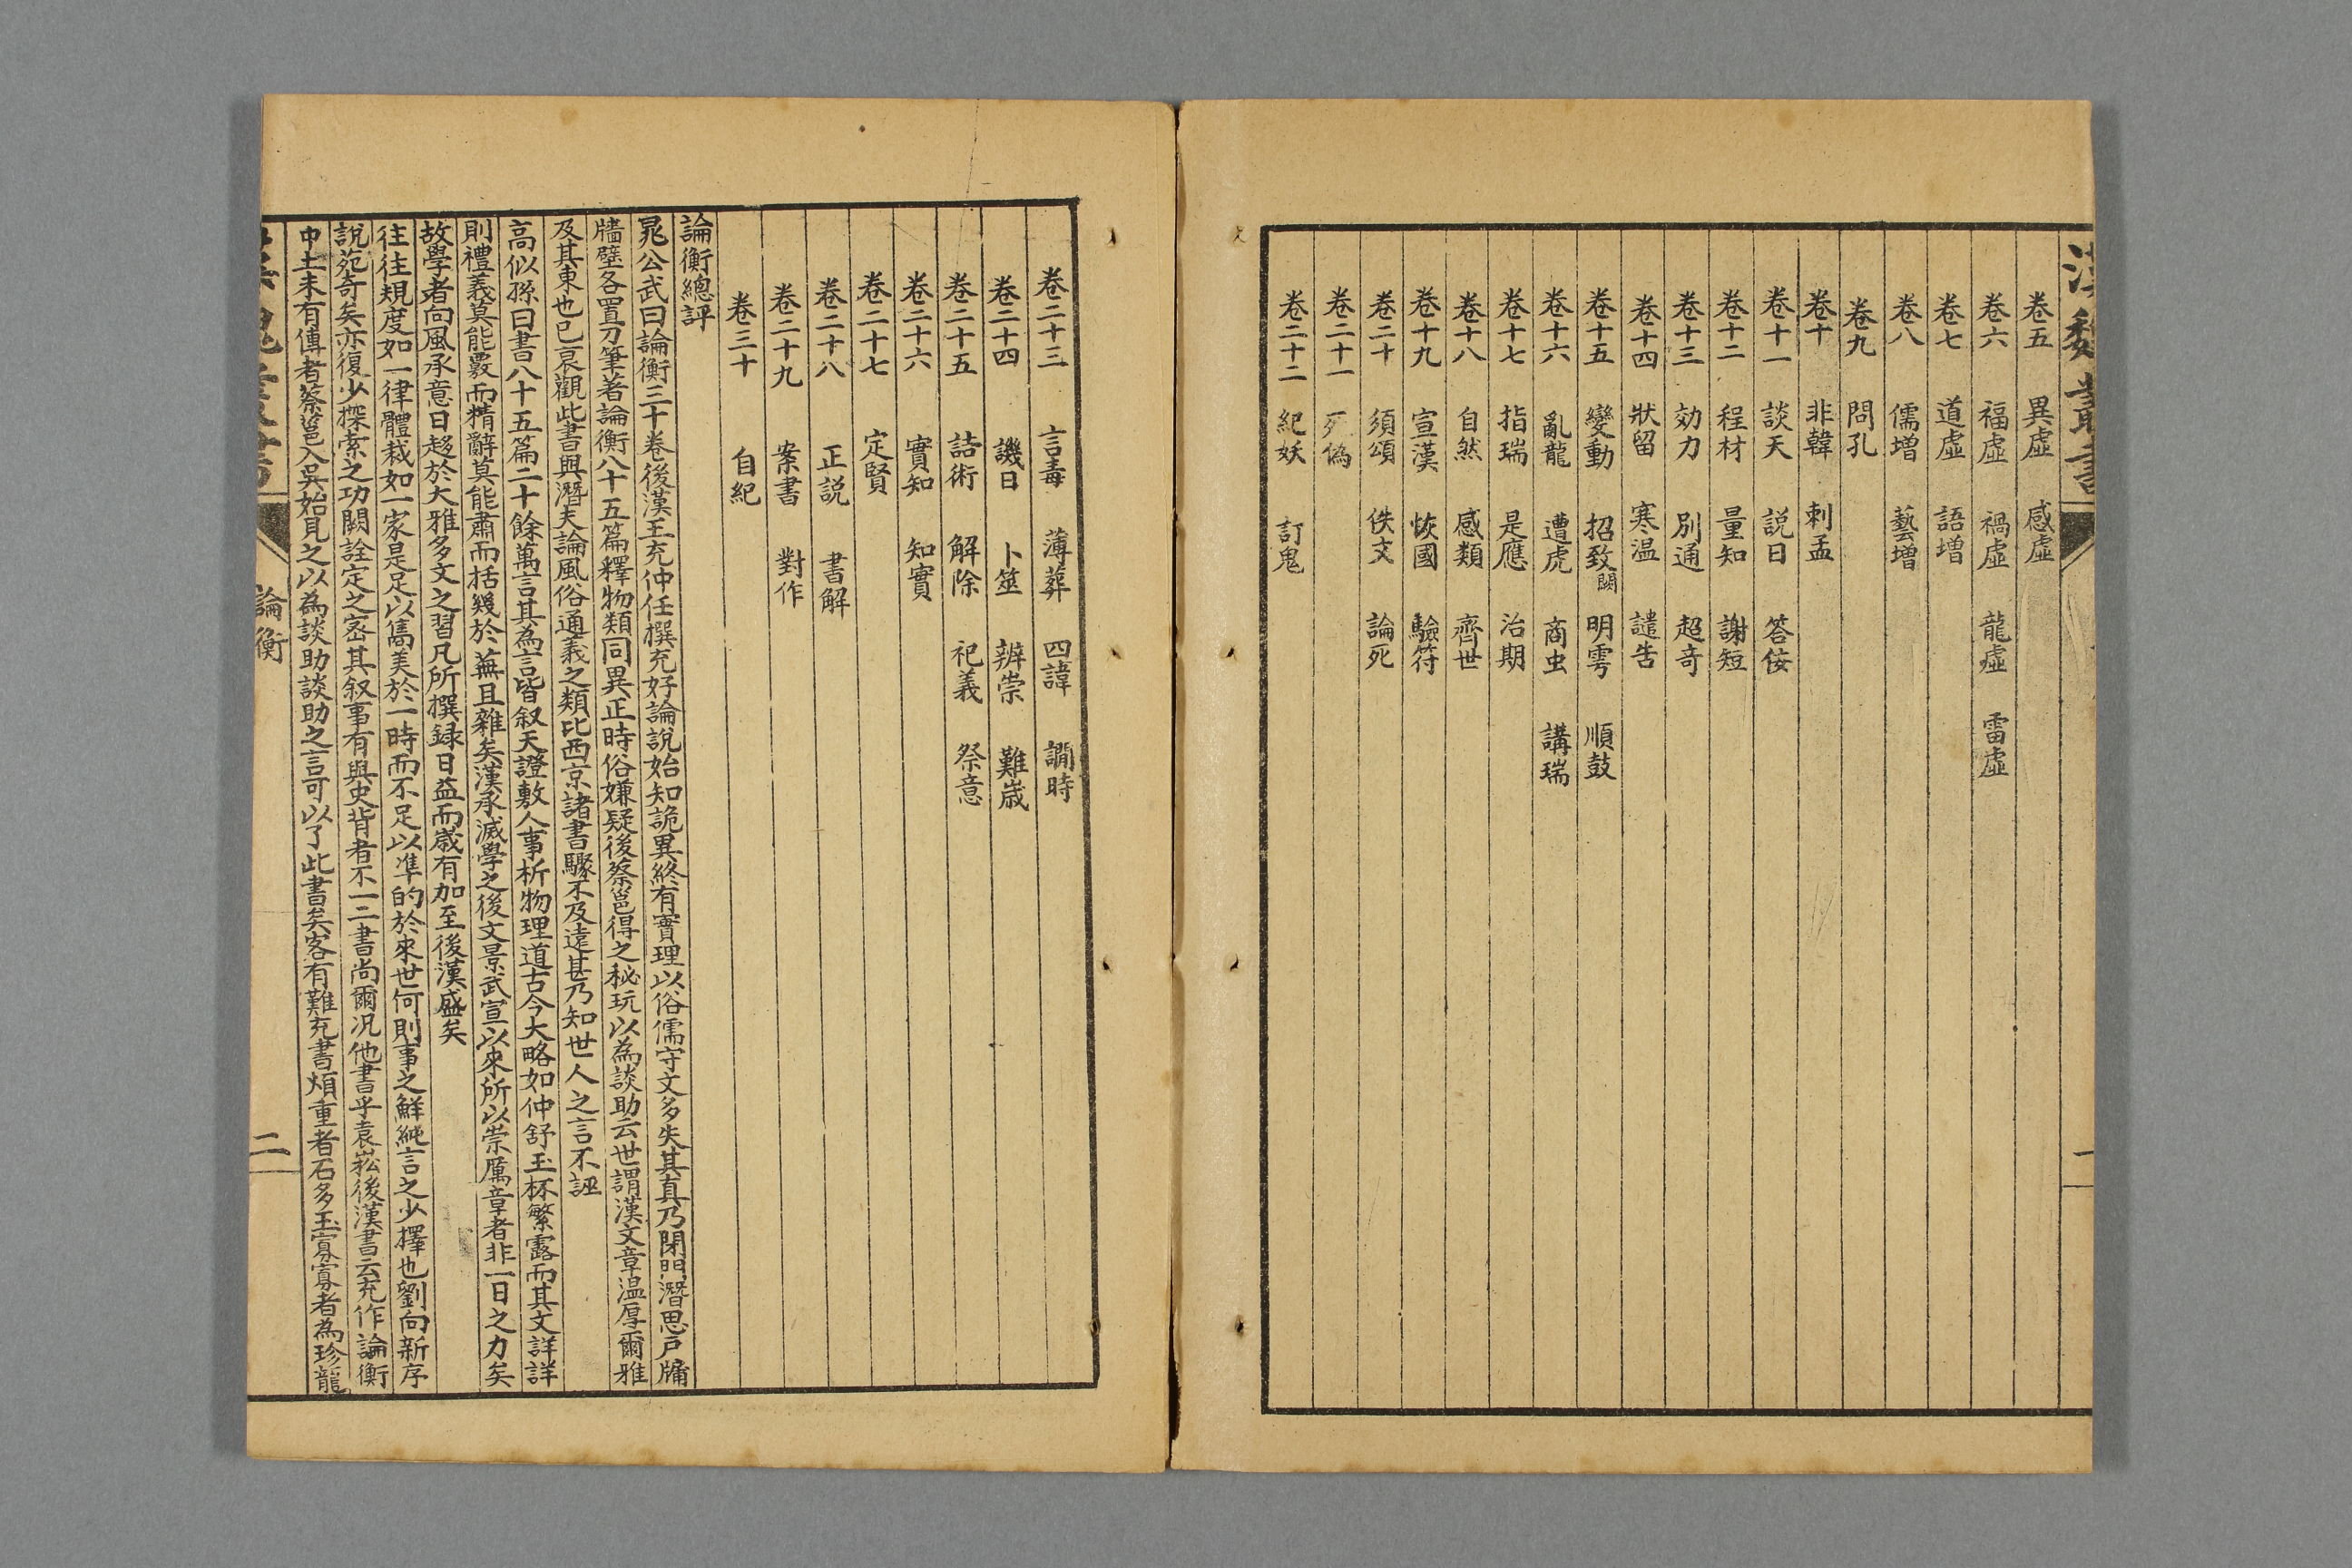 漢魏叢書
卷五　異虛　感虛
卷六　福虛　禍虛　龍虛　雷虛
卷七　道虛　語增
卷八　儒增　藝增
卷九　問孔
卷十　非韓　刺孟
卷十一　談天　説日　答佞
卷十二　程材　量知　謝短
卷十三　効力　別通　超奇
卷十四　狀留　寒温　譴告
卷十五　變動　招致闕　明雩　順鼓
卷十六　亂龍　遭虎　商虫　講瑞
卷十七　指瑞　是應　治期
卷十八　自然　感類　齊世
卷十九　宣漢　恢國　驗符
卷二十　須頌　佚文　論死
卷二十一　死偽
卷二十二　紀妖　訂鬼
卷二十三　言毒　薄葬　四諱　調時
卷二十四　譏日　卜筮　辨崇　難歲
卷二十五　詰術　解除　祀義　祭意
卷二十六　實知　知實
卷二十七　定賢
卷二十八　正説　書解
卷二十九　案書　對作
卷三十　自紀
論衡總評
晁公武曰論衡三十卷後漢王充仲任撰充好論說始知詭異終有實理以俗儒守文多失其真乃閉門潛思戸牖
牆壁各置刀筆著論衡八十五篇釋物類同異正時俗嫌疑後蔡邕得之秘玩以為談助云世謂漢文章温厚爾雅
及其東也已衰觀此書與潛夫論風俗通義之類比西京諸書驟不及遠甚乃知世人之言不誣
高似孫曰書八十五篇二十餘萬言其為言皆叙天證敷人事析物理道古今大略如仲舒玉杯繁露而其文詳詳
則禮義莫能覈而精辭莫能肅而括幾於蕪且雜矣漢承滅學之後文景武宣以來所以崇厲章者非一日之力矣
故學者向風承意日趨於大雅多文之習凡所撰録日益而歲有加至後漢盛矣
往往規度如一律體裁如一家是足以雋美於一時而不足以凖的於來世何則事之鮮純言之少擇也劉向新序
說苑奇矣亦復少探索之功闕詮定之密其叙事有與史背者不一二書尚爾况他書乎袁崧後漢書云充作論衡
中土未有傳者蔡邕入吳始見之以為談助談助之言可以了此書矣客有難充書煩重者石多玉寡寡者為珍龍
論衡
二